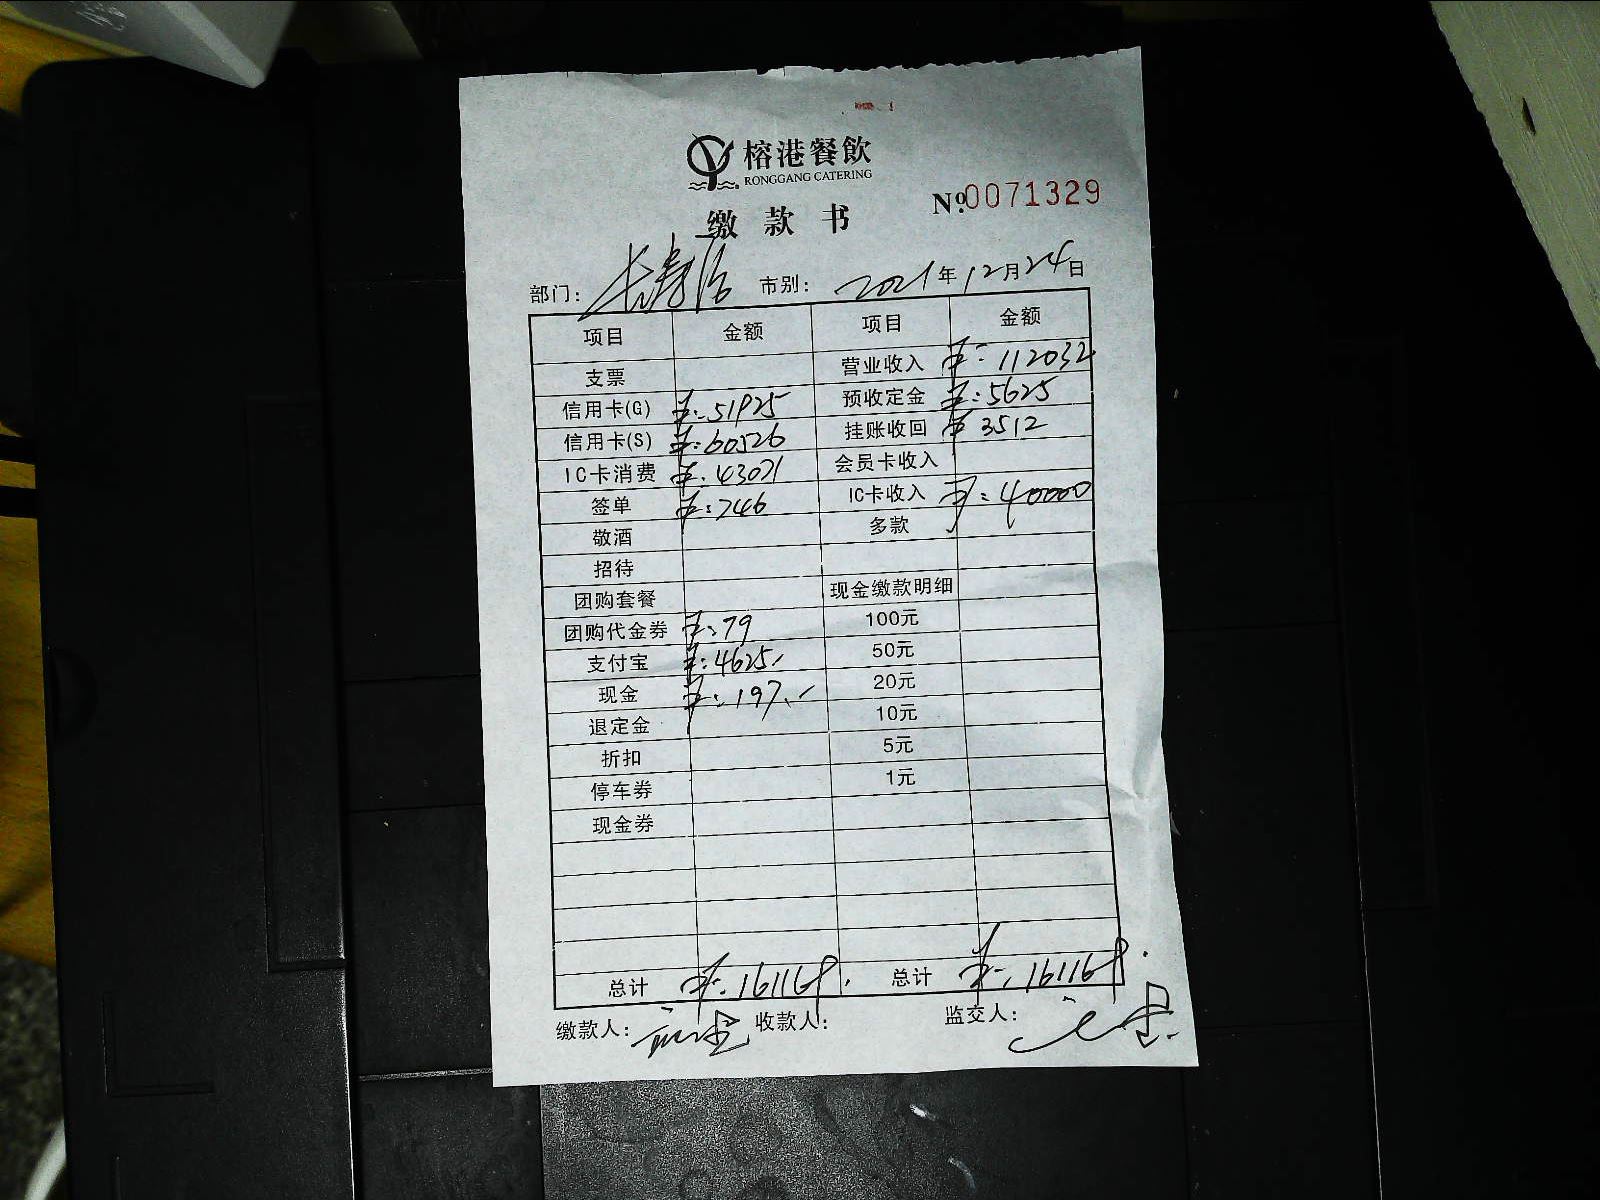 榕港餐飲
RONGGANG CATERING
缴款书
Nº.0071329
部门: 长寿 市别: 2021年12月24日
项目 金额 项目 金额
支票 营业收入 ¥:112032
信用卡(G) ¥:51925 预收定金 ¥:5625
信用卡(S) ¥:60526 挂账收回 ¥3512
IC卡消费 ¥:43071 会员卡收入
签单 ¥:746 IC卡收入 ¥:40000
敬酒 多款
招待
团购套餐 现金缴款明细
团购代金券 ¥:79 100元
支付宝 ¥:4625 50元
现金 ¥:197 20元
退定金 10元
折扣 5元
停车券 1元
现金券
总计 ¥:161169 总计 ¥:161169
缴款人: 收款人: 监交人: